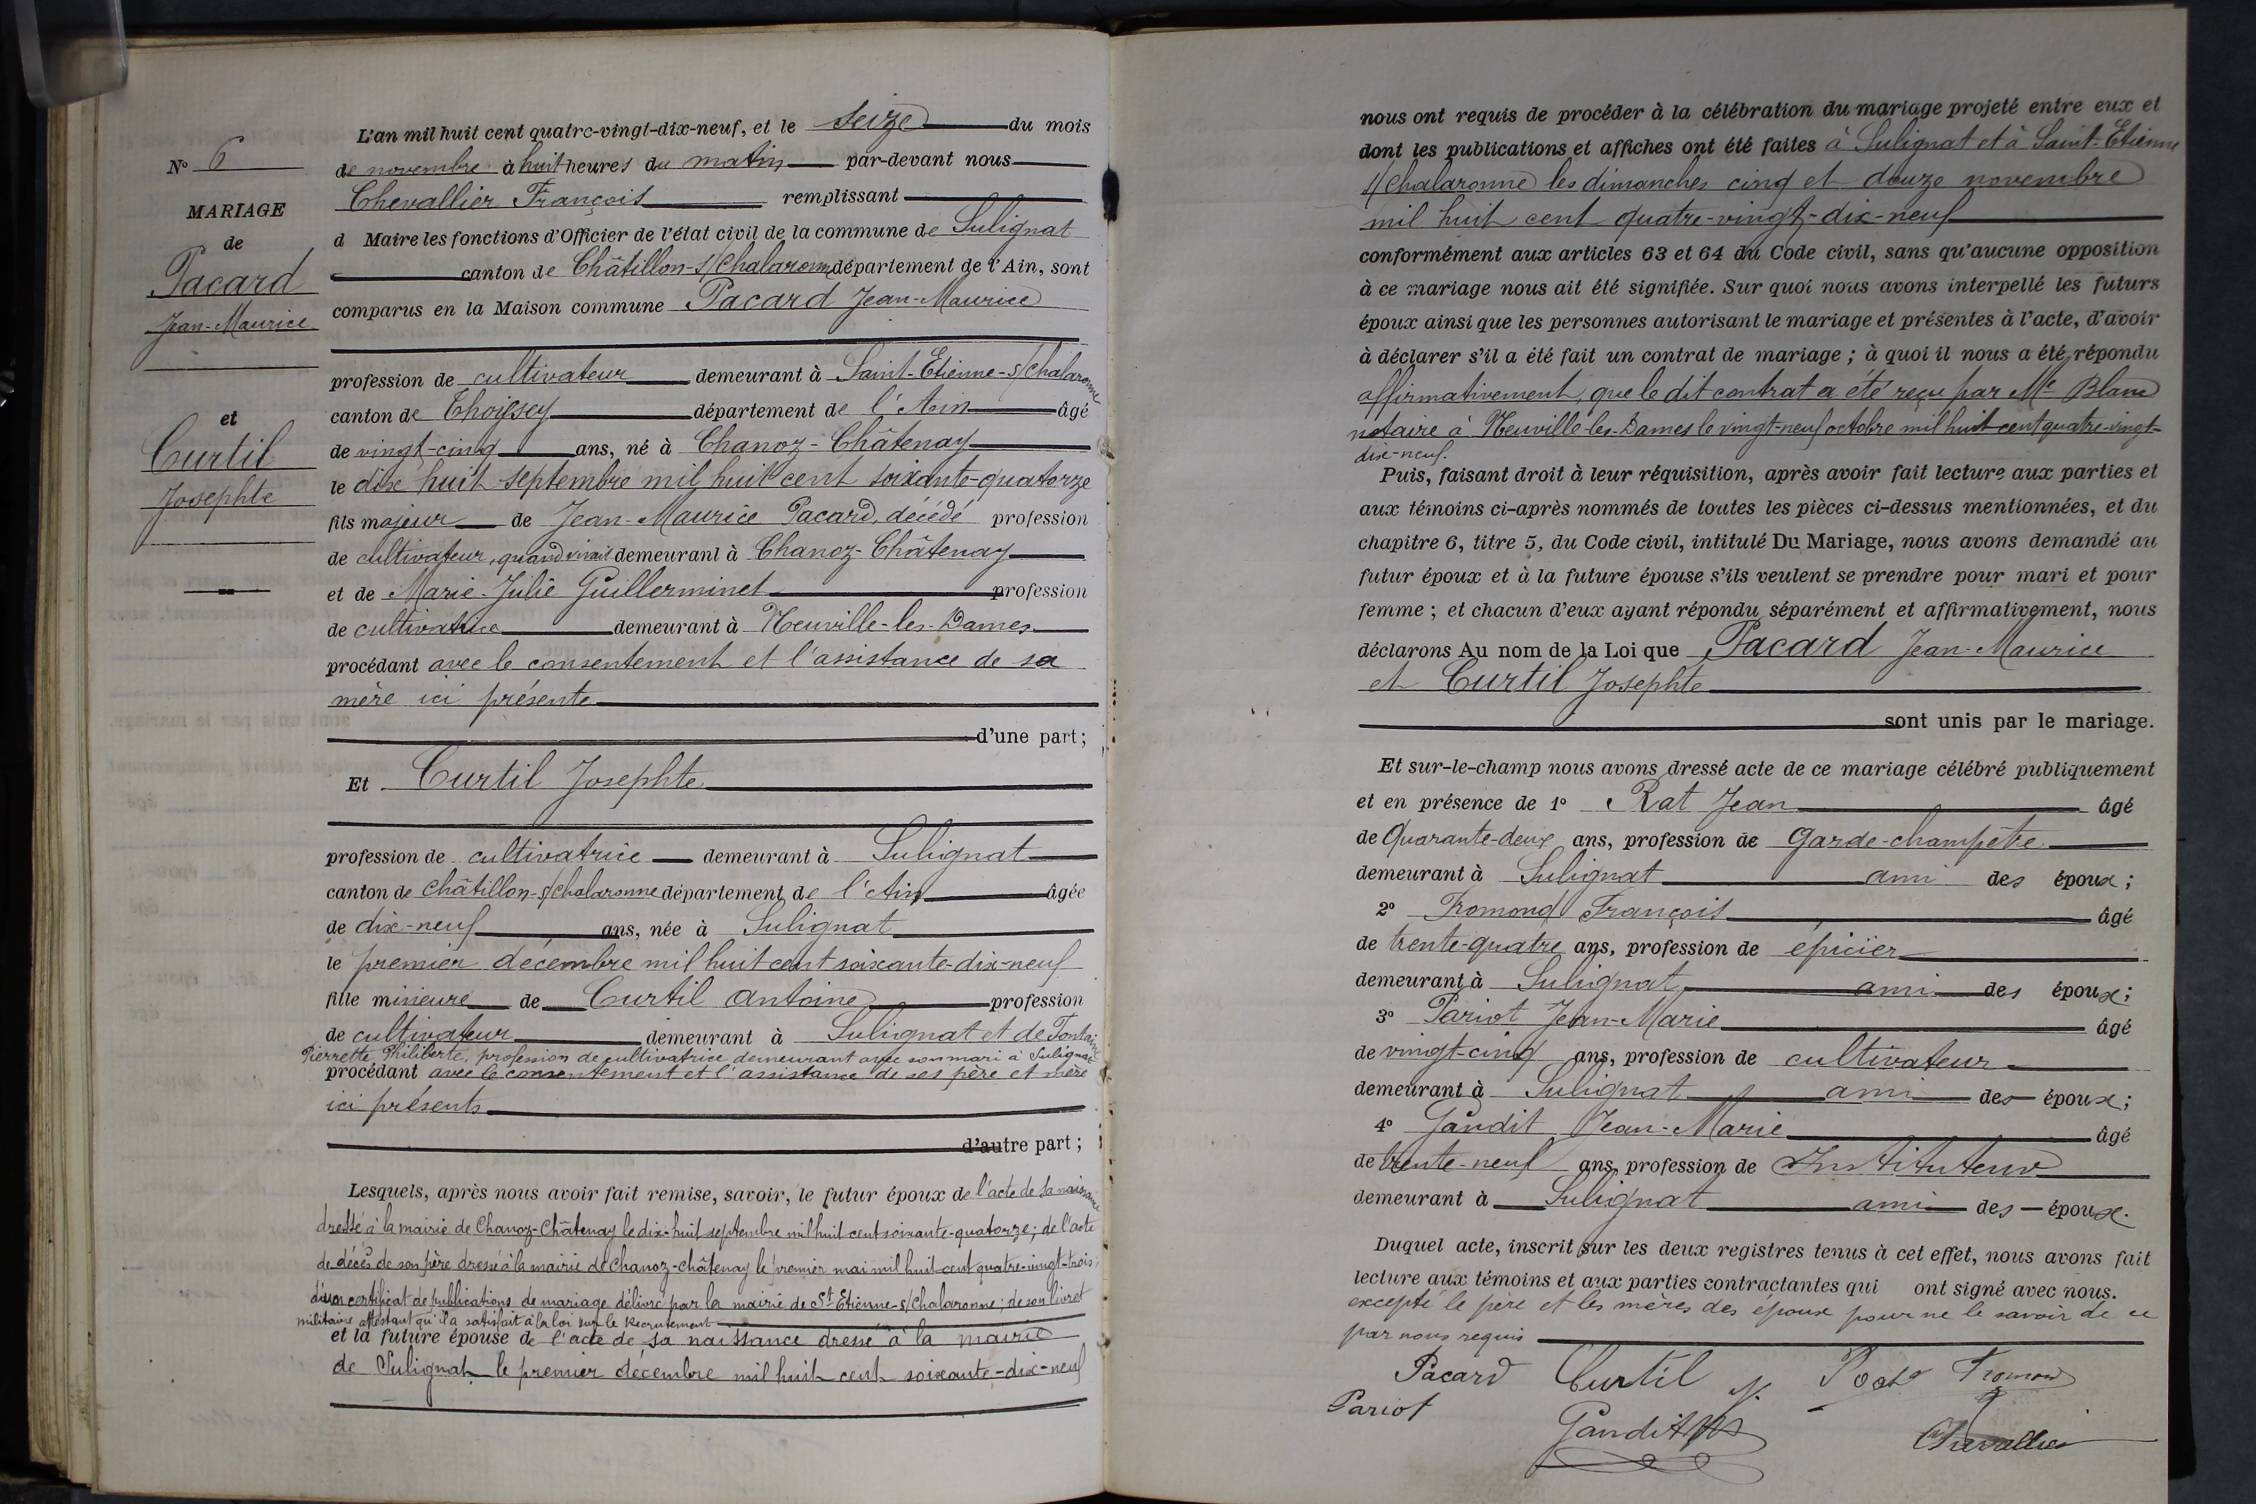 N° 6
MARIAGE
de
Pacard
Jean-Maurice
et
Curtil
Josephte
L'an mil huit cent quatre-vingt-dix-neuf, et le seize du mois
de novembre à huit heures du matin par-devant nous
Chevallier François remplissant
d Maire les fonctions d'Officier de l'état civil de la commune de Sulignat
canton de Châtillon-s/Chalaronne département de l'Ain, sont
comparus en la Maison commune Pacard Jean-Maurice
profession de cultivateur demeurant à Saint-Etienne-s/Chalaronne
canton de Thoissey département de l'Ain âgé
de vingt-cinq ans, né à Chanoz-Châtenay
le dix huit septembre mil huit cent soixante-quatorze
fils majeur de Jean-Maurice Pacard, décédé profession
de cultivateur, quand vivait demeurant à Chanoz-Châtenay
et de Marie-Julie Guillerminet profession
de cultivatrice demeurant à Neuville-les-Dames
procédant avec le consentement et l'assistance de sa
mère ici présente
d'une part;
Et Curtil Josephte
profession de cultivatrice demeurant à Sulignat
canton de Châtillon-s/Chalaronne département de l'Ain âgée
de dix-neuf ans, née à Sulignat
le premier décembre mil huit cent soixante-dix-neuf
fille mineure de Curtil Antoine profession
de cultivateur demeurant à Sulignat et de Fontaine
Pierrette Philiberte, profession de cultivatrice demeurant avec son mari à Sulignat
procédant avec le consentement et l'assistance de ses père et mère
ici présents
d'autre part;
Lesquels, après nous avoir fait remise, savoir, le futur époux de l'acte de sa naissance
dressé à la mairie de Chanoz-Châtenay le dix-huit septembre mil huit cent soixante-quatorze; de l'acte
de décès de son père dressé à la mairie de Chanoz-Châtenay le premier mai mil huit cent quatre-vingt-trois;
d'un certificat de publications de mariage délivré par la mairie de St Etienne-s/Chalaronne; de son livret
militaire attestant qu'il a satisfait à la loi sur le Recrutement
et la future épouse de l'acte de sa naissance dressé à la mairie
de Sulignat le premier décembre mil huit cent soixante-dix-neuf
nous ont requis de procéder à la célébration du mariage projeté entre eux et
dont les publications et affiches ont été faites à Sulignat et à Saint-Etienne
s/Chalaronne les dimanches cinq et douze novembre
mil huit cent quatre-vingt-dix-neuf
conformément aux articles 63 et 64 du Code civil, sans qu'aucune opposition
à ce mariage nous ait été signifiée. Sur quoi nous avons interpellé les futurs
époux ainsi que les personnes autorisant le mariage et présentes à l'acte, d'avoir
à déclarer s'il a été fait un contrat de mariage; à quoi il nous a été répondu
affirmativement, que le dit contrat a été reçu par Me Blanc
notaire à Neuville-les-Dames le vingt-neuf octobre mil huit cent quatre-vingt-
dix-neuf.
Puis, faisant droit à leur réquisition, après avoir fait lecture aux parties et
aux témoins ci-après nommés de toutes les pièces ci-dessus mentionnées, et du
chapitre 6, titre 5, du Code civil, intitulé Du Mariage, nous avons demandé au
futur époux et à la future épouse s'ils veulent se prendre pour mari et pour
femme; et chacun d'eux ayant répondu séparément et affirmativement, nous
déclarons Au nom de la Loi que Pacard Jean-Maurice
et Curtil Josephte
sont unis par le mariage.
Et sur-le-champ nous avons dressé acte de ce mariage célébré publiquement
et en présence de 1° Rat Jean âgé
de Quarante-deux ans, profession de Garde-champêtre
demeurant à Sulignat ami des époux;
2° Fromond François âgé
de trente-quatre ans, profession de épicier
demeurant à Sulignat ami des époux;
3° Pariot Jean-Marie âgé
de vingt-cinq ans, profession de cultivateur
demeurant à Sulignat ami des époux;
4° Gandit Jean-Marie âgé
de trente-neuf ans, profession de Instituteur
demeurant à Sulignat ami des époux.
Duquel acte, inscrit sur les deux registres tenus à cet effet, nous avons fait
lecture aux témoins et aux parties contractantes qui ont signé avec nous.
excepté le père et les mères des époux pour ne le savoir de ce
par nous requis
Pacard Curtil J. Fromond
Pariot
Gandit
Chevallier